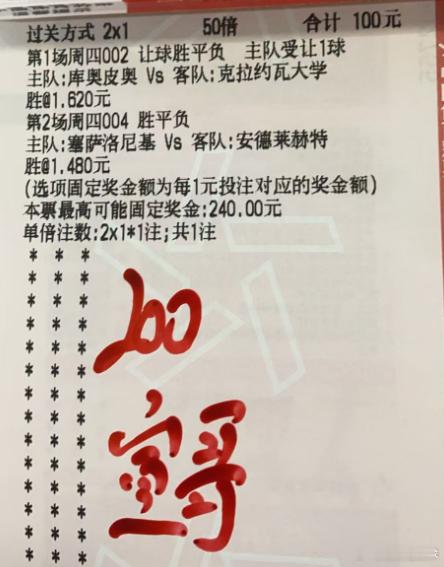 过关方式 2x1 50倍 合计 100元
第1场周四002 让球胜平负 主队受让1球
主队:库奥皮奥 Vs 客队:克拉约瓦大学
胜@1.620元
第2场周四004 胜平负
主队:塞萨洛尼基 Vs 客队:安德莱赫特
胜@1.480元
(选项固定奖金额为每1元投注对应的奖金额)
本票最高可能固定奖金:240.00元
单倍注数:2x1*1注;共1注
* * *
* * *
* * *
* * *
* * *
* * *
* * *
* * *
* * *
* * *
* * *
* * *
* * *
* * *